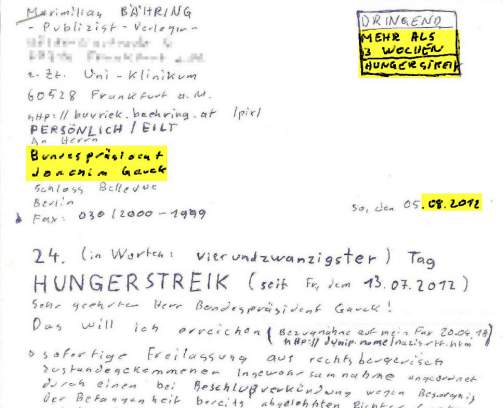 Maximilian BÄHRING
- Publizist - Verleger -
z. Zt. Uni-Klinikum
60528 Frankfurt a.M.
http://buvriek.baehring.at /pir/
PERSÖNLICH / EILT
An Herrn
Bundespräsident
Joachim Gauck
Schloss Bellevue
Berlin
Fax: 030/2000-1999
DRINGEND
MEHR ALS
3 WOCHEN
HUNGERSTREIK
So, den 05.08.2012
24. (in Worten: vierundzwanzigster) Tag
HUNGERSTREIK (seit Fr, dem 13.07.2012)
Sehr geehrter Herr Bundespräsident Gauck!
Das will ich erreichen (Bezugnahme auf mein Fax 20.04.
http://dynip.name/nazis-rtt.htm
o sofortige Freilassung aus rechtsbergerisch
zustandegekommener Ingewahrsamnahme angeordnet
durch einen bei Beschlußverkündung wegen Besorgnis
der Befangenheit bereits abgelehnten Richter